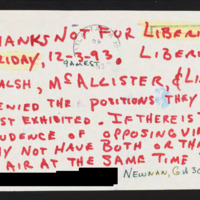 HANKS NOT FUR LIBERI
RIDAY, 12-3-93. LIBERI
9AM EST
ALSH, MCALLISTER & LI
ENIED THE POSITIONS THEY
ST EXHIBITED. IF THERE IS
UDENCE OF OPPOSING VIE
Y NOT HAVE BOTH OR TH
AIR AT THE SAME TIME
NEWNAN, GA 30